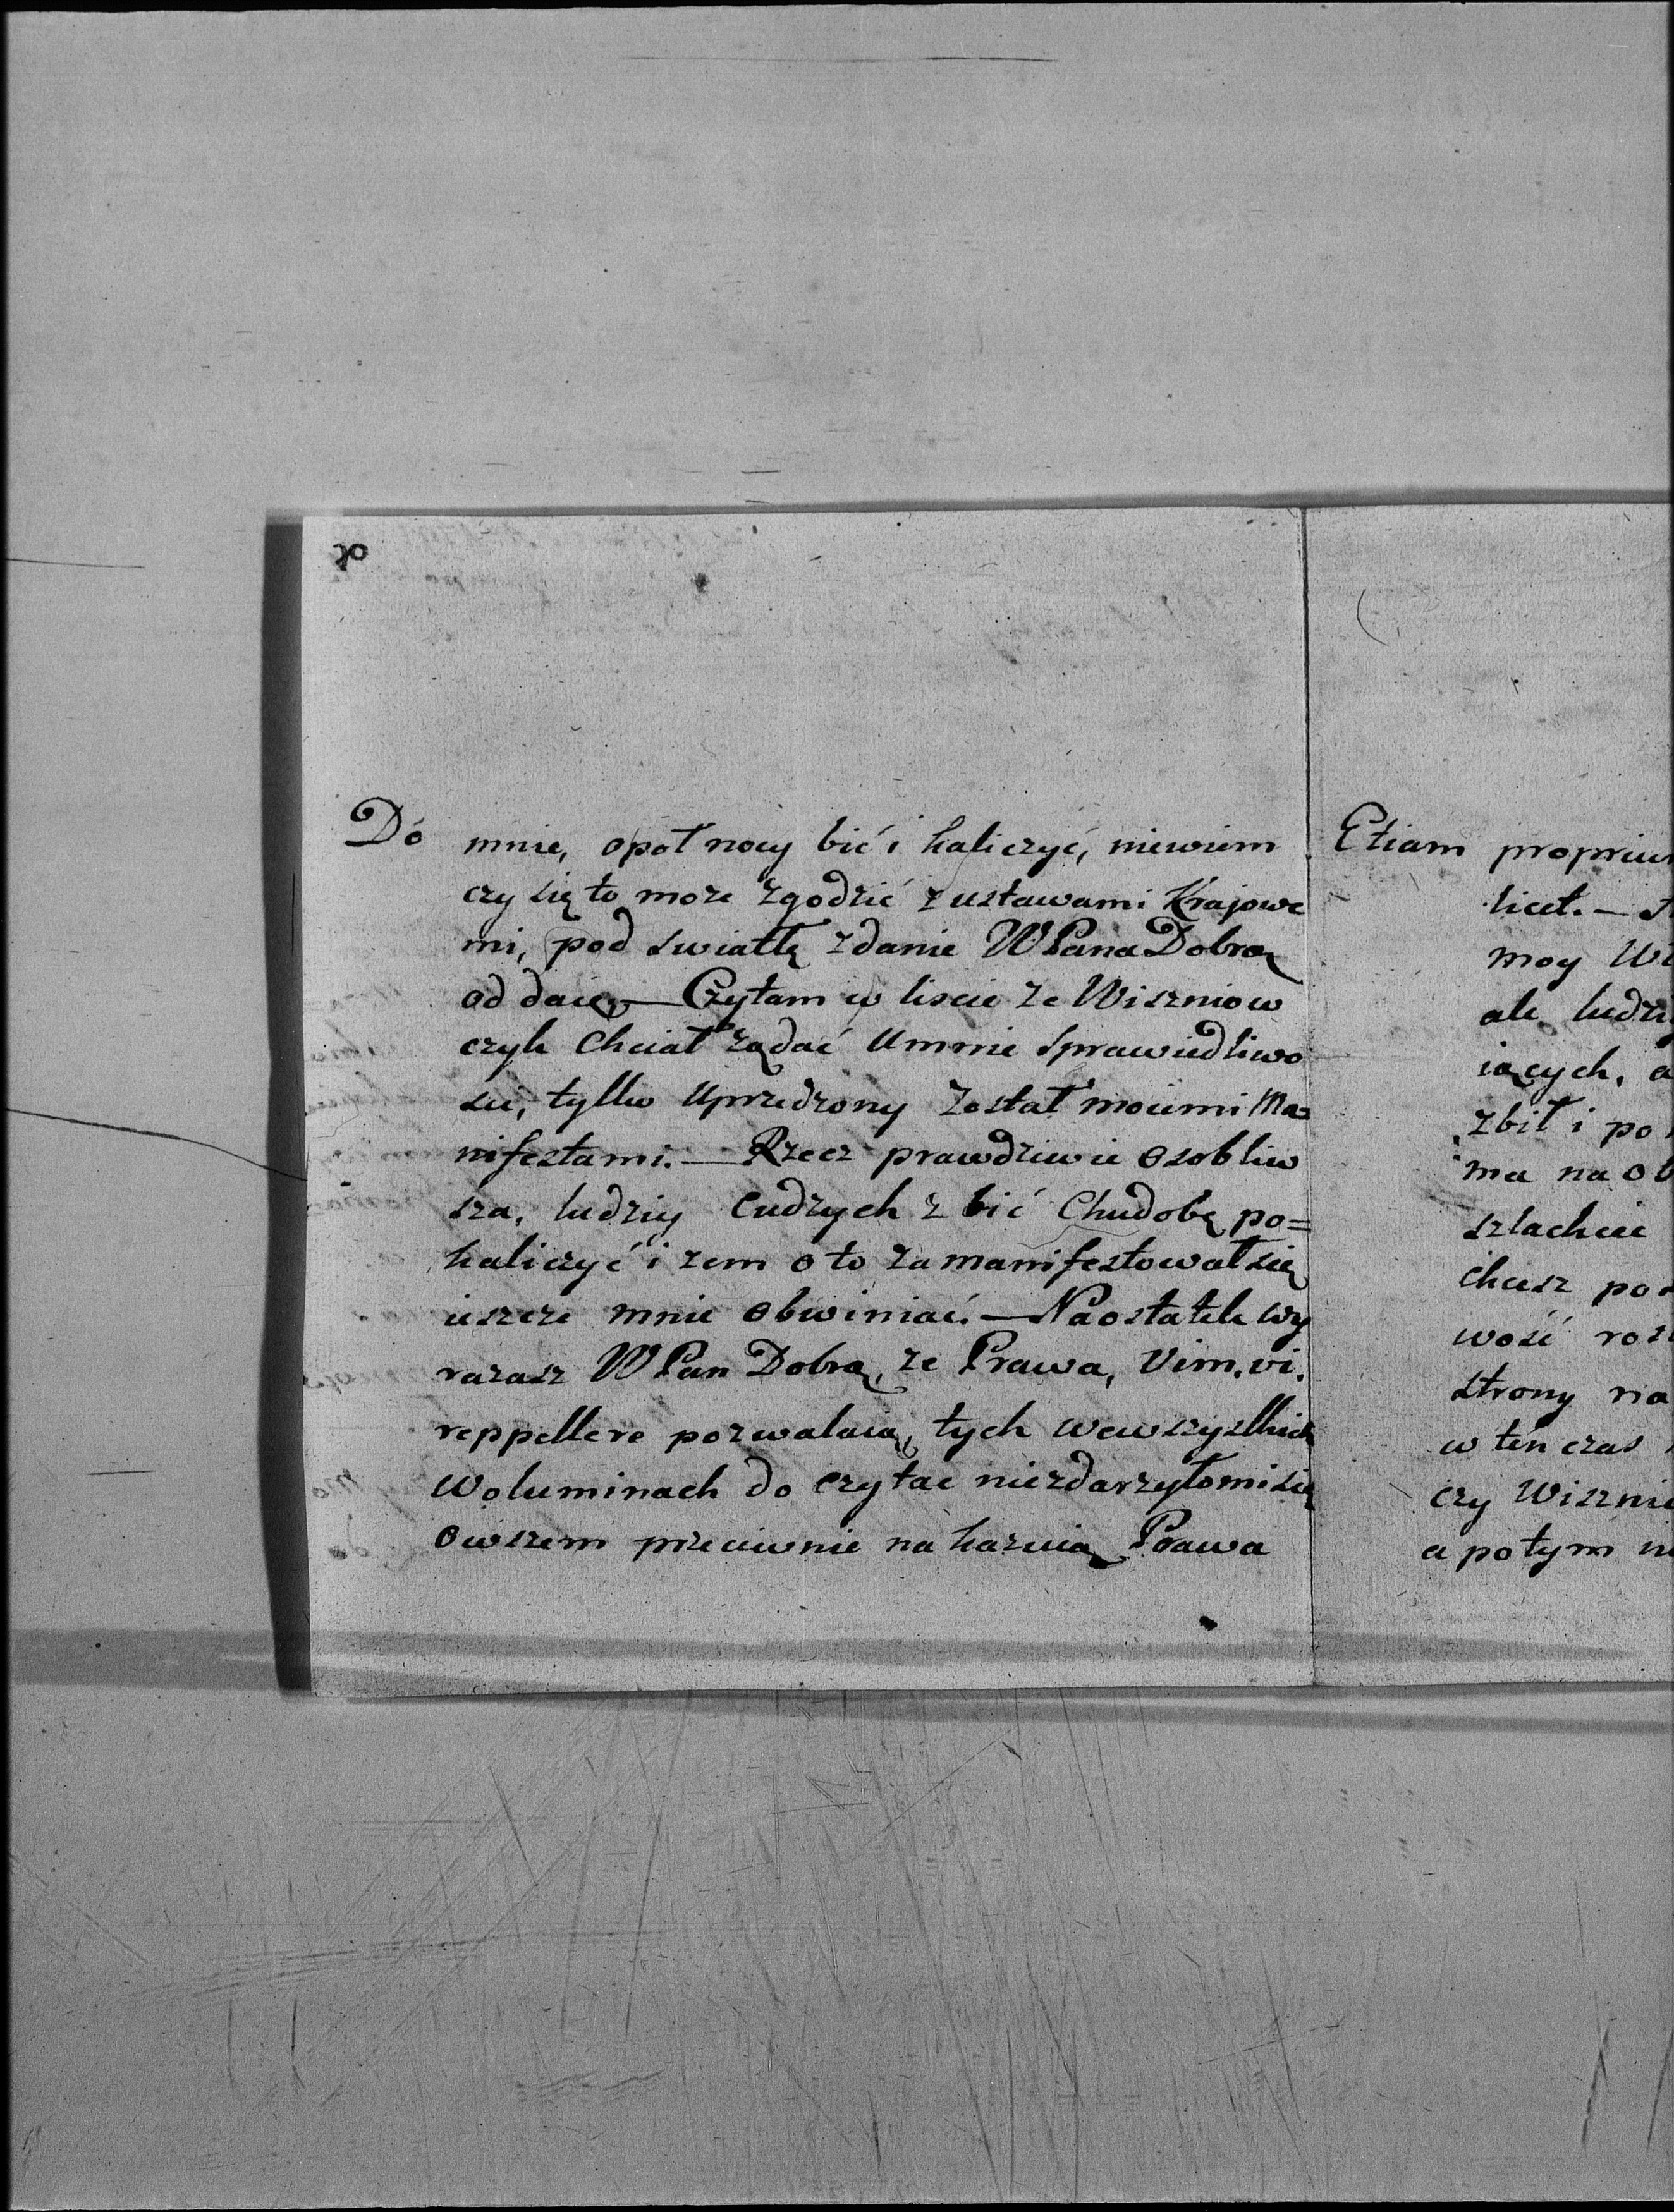 20
Do mnie, opoł nocy bić i kaliczyć, niewiem
czy się to może zgodzić z ustawami Krajowe
mi, pod swiatłę zdanie WPana Dobrą
oddaię, — Czytam w liscie że Wiszniow
czyk chciał żądać Ummie sprawiedliwo
sci, tylko uprzedzony został moiemi Ma=
nifestami. — Rzecz prawdziwie osobliw
sza, ludziy cudzych zbić Chudobę po=
kaliczyć i żem oto zamanifestował się
ieszcze mnie obwiniać. — Naostatek wy
rażasz WPan Dobrą, że Prawa, Vim. vi.
reppellere pozwalaią, tych wewszystkich
Woluminach do czytac niezdarzyłomisię
owszem przeciwnie nakazuią Prawa
Etiam proprium
licet. —
moy Wi
ale ludzi
iących, a
zbił i po
ma na ob
szlachcic
chcesz po
wość roz
strony na
w ten czas
czy Wiszni
a potym ni